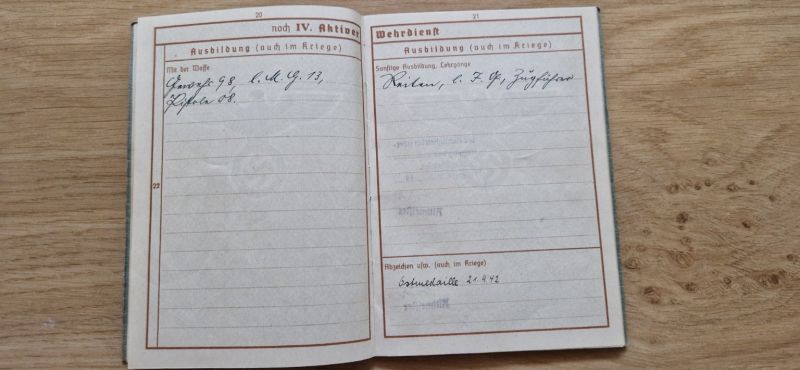 20
noch IV. Aktiver
Ausbildung (auch im Kriege)
Mit der Waffe
Gewehr 98, l. M. G. 13,
Pistole 08.
22
21
Wehrdienst
Ausbildung (auch im Kriege)
Sonstige Ausbildung, Lehrgänge
Reiten, Zugführer
Abzeichen usw. (auch im Kriege)
Ostmedaille 21.9.42
Rittmeister